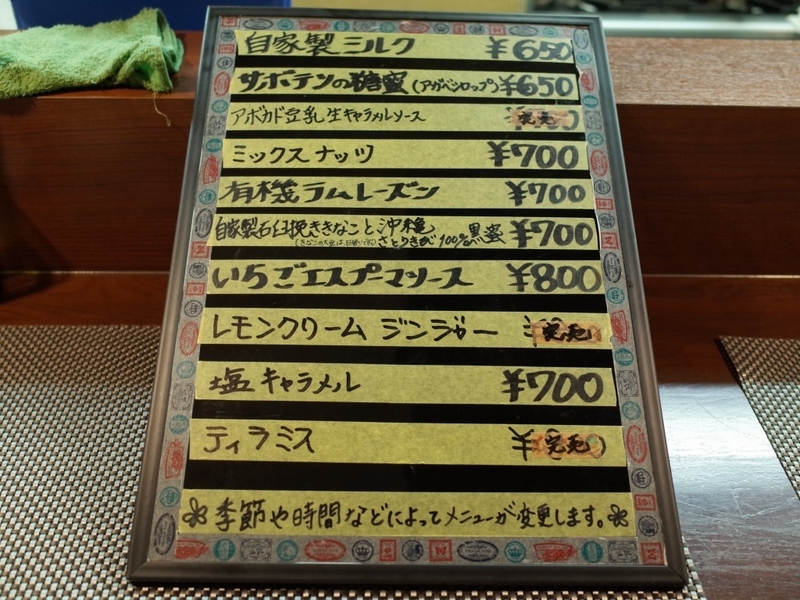 自家製ミルク ¥650
サボテンの糖蜜(アガベシロップ) ¥650
アボカド豆乳生キャラメルソース 完売
ミックスナッツ ¥700
有機ラムレーズン ¥700
自家製石臼挽ききなこと沖縄 黒蜜 ¥700
さとうきび100%
いちごエスプーマソース ¥800
レモンクリーム ジンジャー 完売
塩キャラメル ¥700
ティラミス ¥ 完売
季節や時間などによってメニューが変更します。